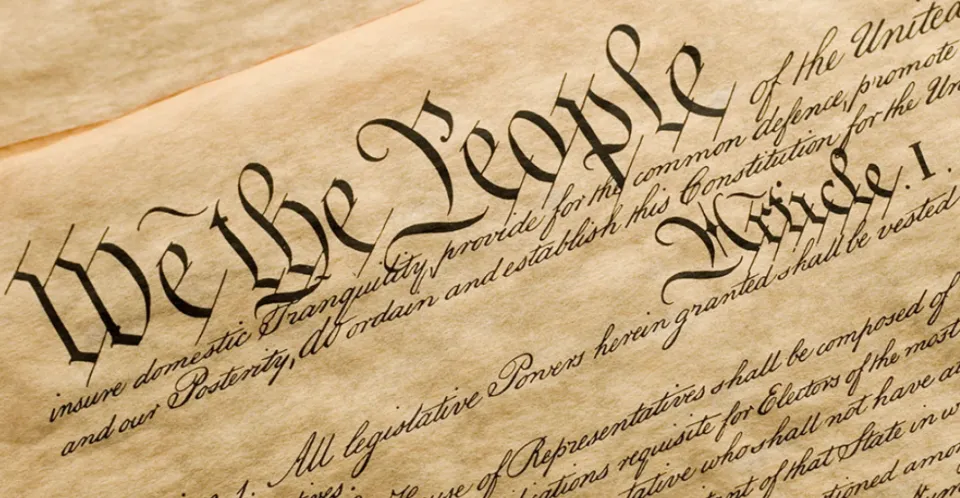 We the People of the United
insure domestic Tranquility, provide for the common defence, promote
and our Posterity, do ordain and establish this Constitution for the Un
Article. I.
All legislative Powers herein granted shall be vested
use of Representatives shall be composed of
ications requisite for Electors of the most
tative who shall not have at
nt of that State in w
tioned amon